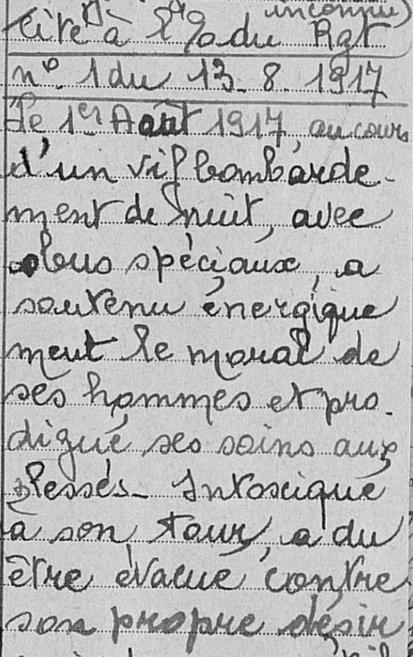 inconnu)
Cité à l'O du Rgt
n° 1 du 13.8.1917
le 1er Août 1917, au cours
d'un vif bombarde-
ment de nuit, avec
obus spéciaux, a
soutenu énergique
ment le moral de
ses hommes et pro-
digué ses soins aux
blessés - Intoxiqué
à son tour, a du
être évacué contre
son propre désir